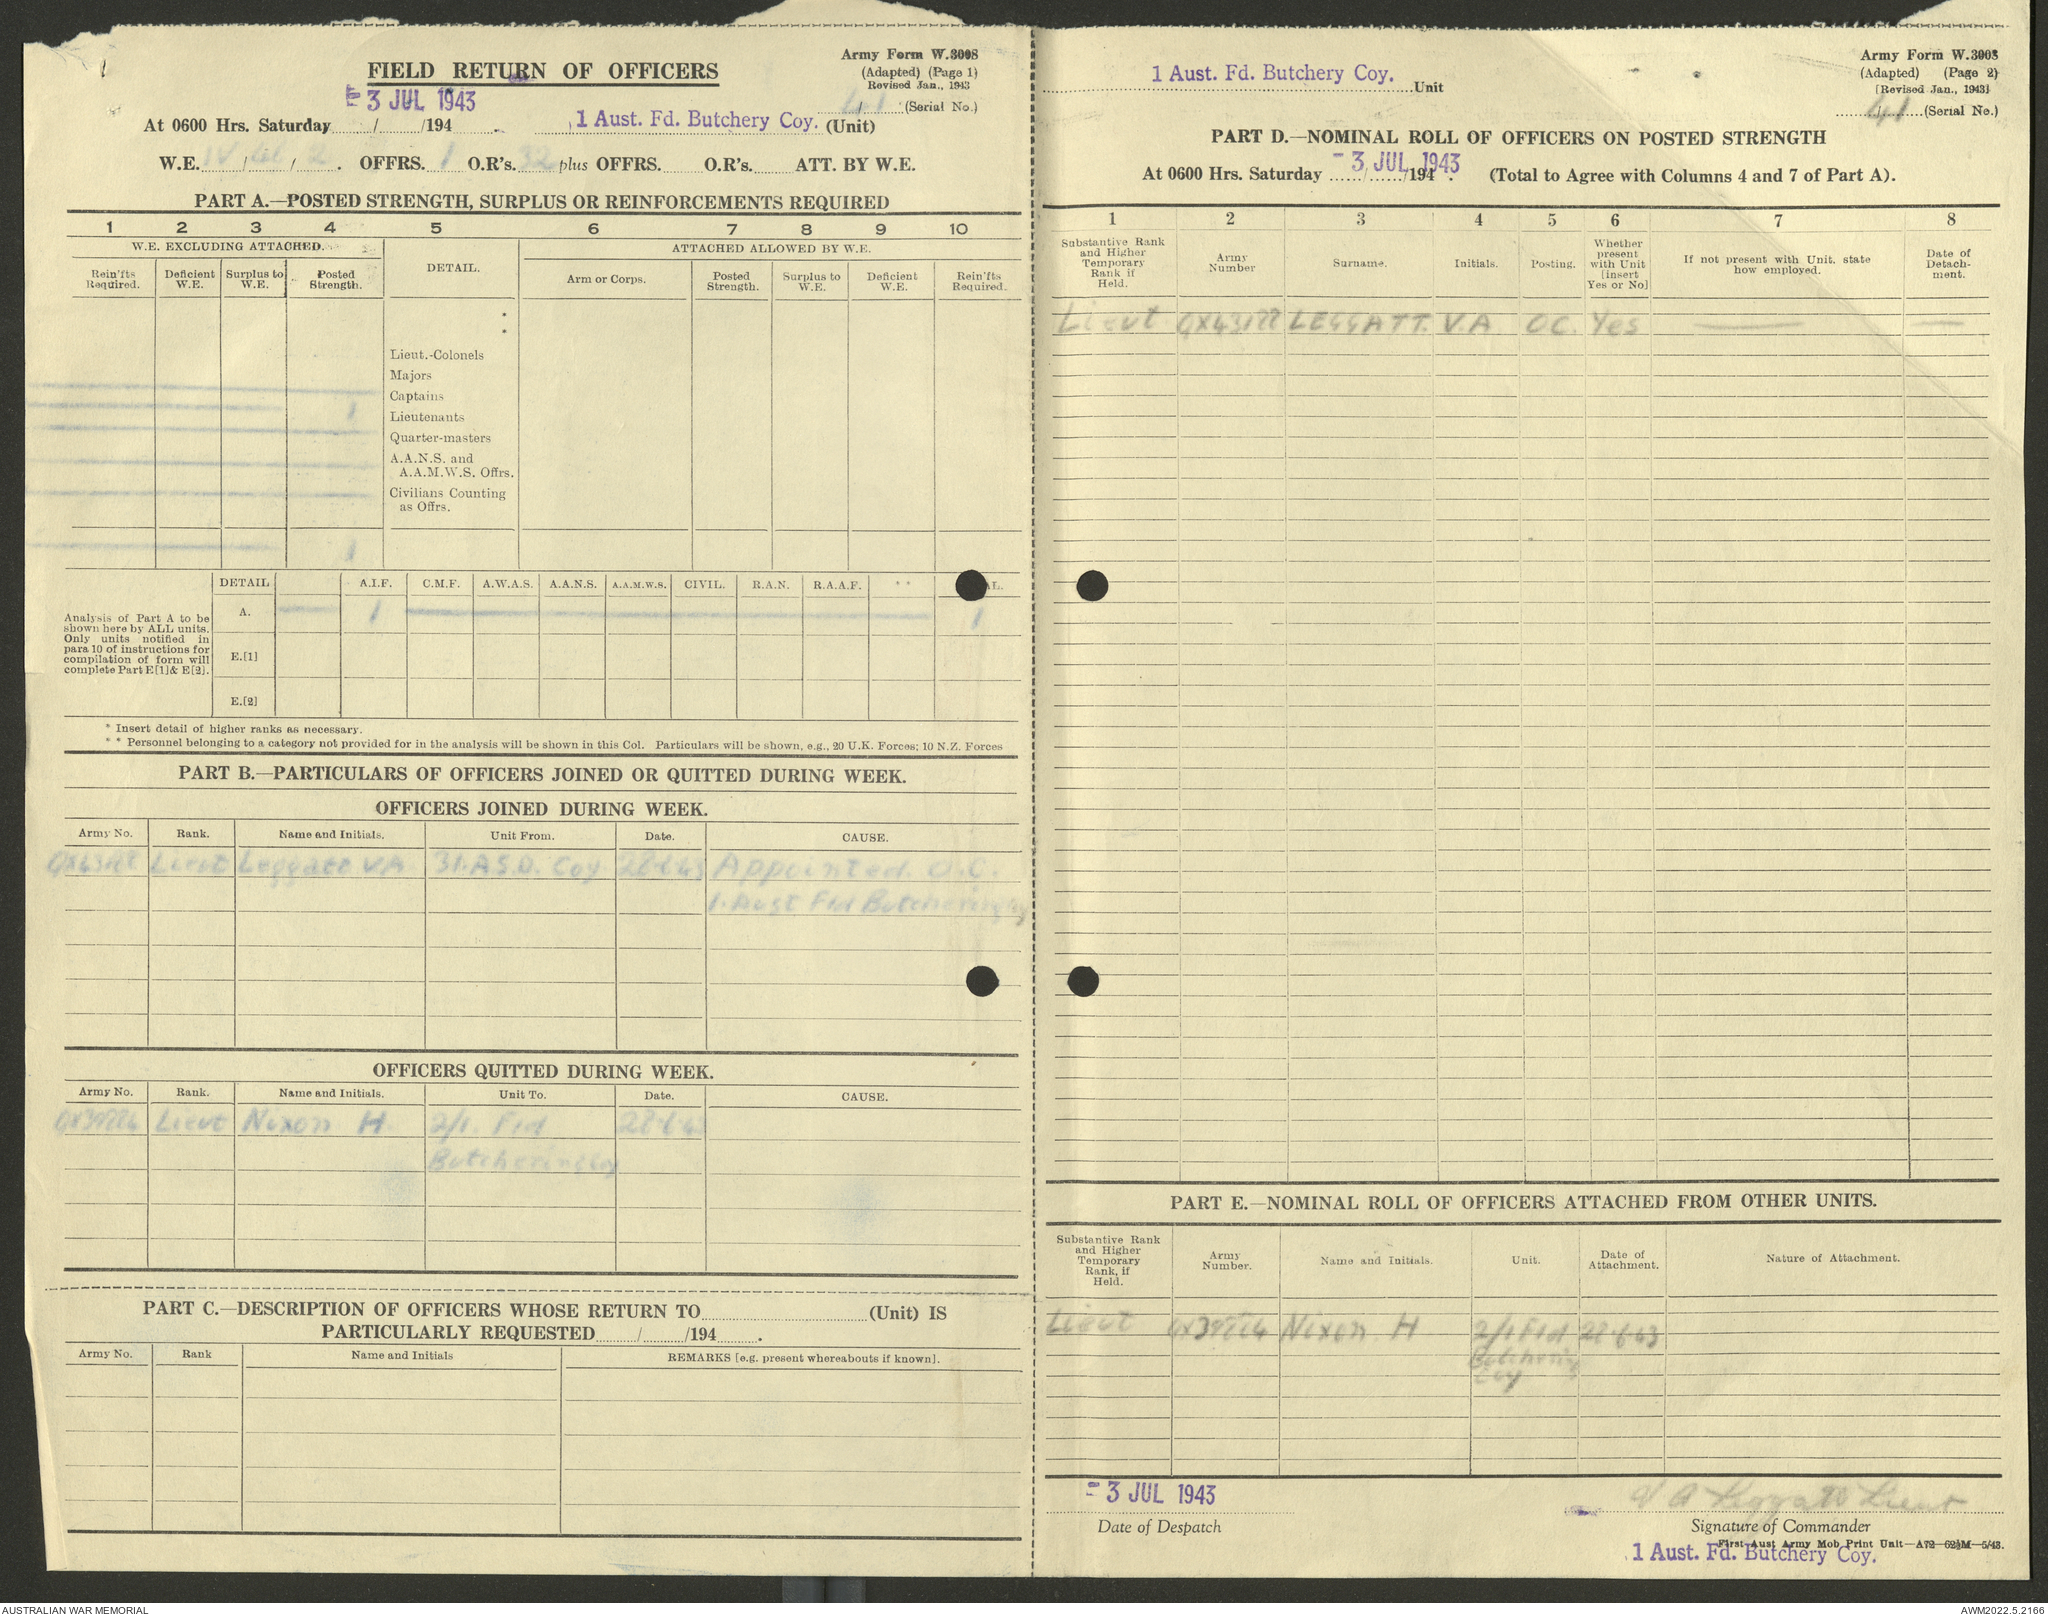 Army Form W.3008
FIELD RETURN OF OFFICERS
(Adapted) (Page 1)
Revised Jan., 1943
- 3 JUL 1943
41 (Serial No.)
At 0600 Hrs. Saturday ....../....../194...... . 1 Aust. Fd. Butchery Coy. (Unit)
W.E. IV / / 2 . OFFRS. 1 O.R's. 32 plus OFFRS. O.R's. ATT. BY W.E.
PART A.—POSTED STRENGTH, SURPLUS OR REINFORCEMENTS REQUIRED
1 2 3 4 5 6 7 8 9 10
W.E. EXCLUDING ATTACHED. DETAIL. ATTACHED ALLOWED BY W.E.
Rein'fts Required. Deficient W.E. Surplus to W.E. Posted Strength. Arm or Corps. Posted Strength. Surplus to W.E. Deficient W.E. Rein'fts Required.
*
*
Lieut.-Colonels
Majors
Captains
1 Lieutenants
Quarter-masters
A.A.N.S. and
A.A.M.W.S. Offrs.
Civilians Counting
as Offrs.
1
DETAIL A.I.F. C.M.F. A.W.A.S. A.A.N.S. A.A.M.W.S. CIVIL. R.A.N. R.A.A.F. * * AL.
A. 1 1
Analysis of Part A to be
shown here by ALL units.
Only units notified in
para 10 of instructions for
compilation of form will
complete Part E[1]& E[2].
E.[1]
E.[2]
* Insert detail of higher ranks as necessary.
* * Personnel belonging to a category not provided for in the analysis will be shown in this Col. Particulars will be shown, e.g., 20 U.K. Forces; 10 N.Z. Forces
PART B.—PARTICULARS OF OFFICERS JOINED OR QUITTED DURING WEEK.
OFFICERS JOINED DURING WEEK.
Army No. Rank. Name and Initials. Unit From. Date. CAUSE.
Lieut Leggatt V.A 31.A.S.D. Coy 28-6-43 Appointed. O.C.
1. Aust Fld Butchering Coy
OFFICERS QUITTED DURING WEEK.
Army No. Rank. Name and Initials. Unit To. Date. CAUSE.
Lieut Nixon H 2/1. Fld 28-6-43
Butchering Coy
PART C.—DESCRIPTION OF OFFICERS WHOSE RETURN TO (Unit) IS
PARTICULARLY REQUESTED ....../....../194...... .
Army No. Rank Name and Initials REMARKS [e.g. present whereabouts if known].
Army Form W.3008
1 Aust. Fd. Butchery Coy. Unit
(Adapted) (Page 2)
[Revised Jan., 1943]
41 (Serial No.)
PART D.—NOMINAL ROLL OF OFFICERS ON POSTED STRENGTH
- 3 JUL 1943
At 0600 Hrs. Saturday ....../....../194 . (Total to Agree with Columns 4 and 7 of Part A).
1 2 3 4 5 6 7 8
Substantive Rank and Higher Temporary Rank if Held. Army Number Surname. Initials. Posting. Whether present with Unit [insert Yes or No] If not present with Unit, state how employed. Date of Detach-ment.
Lieut LEGGATT. V.A. OC. Yes — —
PART E.—NOMINAL ROLL OF OFFICERS ATTACHED FROM OTHER UNITS.
Substantive Rank and Higher Temporary Rank, if Held. Army Number. Name and Initials. Unit. Date of Attachment. Nature of Attachment.
Lieut Nixon. H 2/1 Fld 28-6-43
Butchering
Coy
- 3 JUL 1943
V A Leggatt Lieut
Date of Despatch
Signature of Commander
First Aust Army Mob Print Unit—A72—62½M—5/43.
1 Aust. Fd. Butchery Coy.
AUSTRALIAN WAR MEMORIAL
AWM2022.5.2166